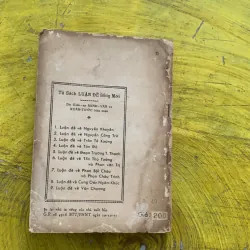 Tủ Sách LUẬN ĐỀ Sống Mới
1. Luận đề về Nguyễn Khuyến
2. Luận đề về Nguyễn Công Trứ
3. Luận đề về Trần Tế Xương
4. Luận đề về Tản Đà
5. Luận đề về Đoạn Trường T. Thanh
6. Luận đề về Tôn Thọ Tường
và Phan văn Trị
7. Luận đề về Phan Bội Châu
và Phan Châu Trinh
8. Luận đề về Cung Oán Ngâm Khúc
9. Luận đề về Văn Chương
200